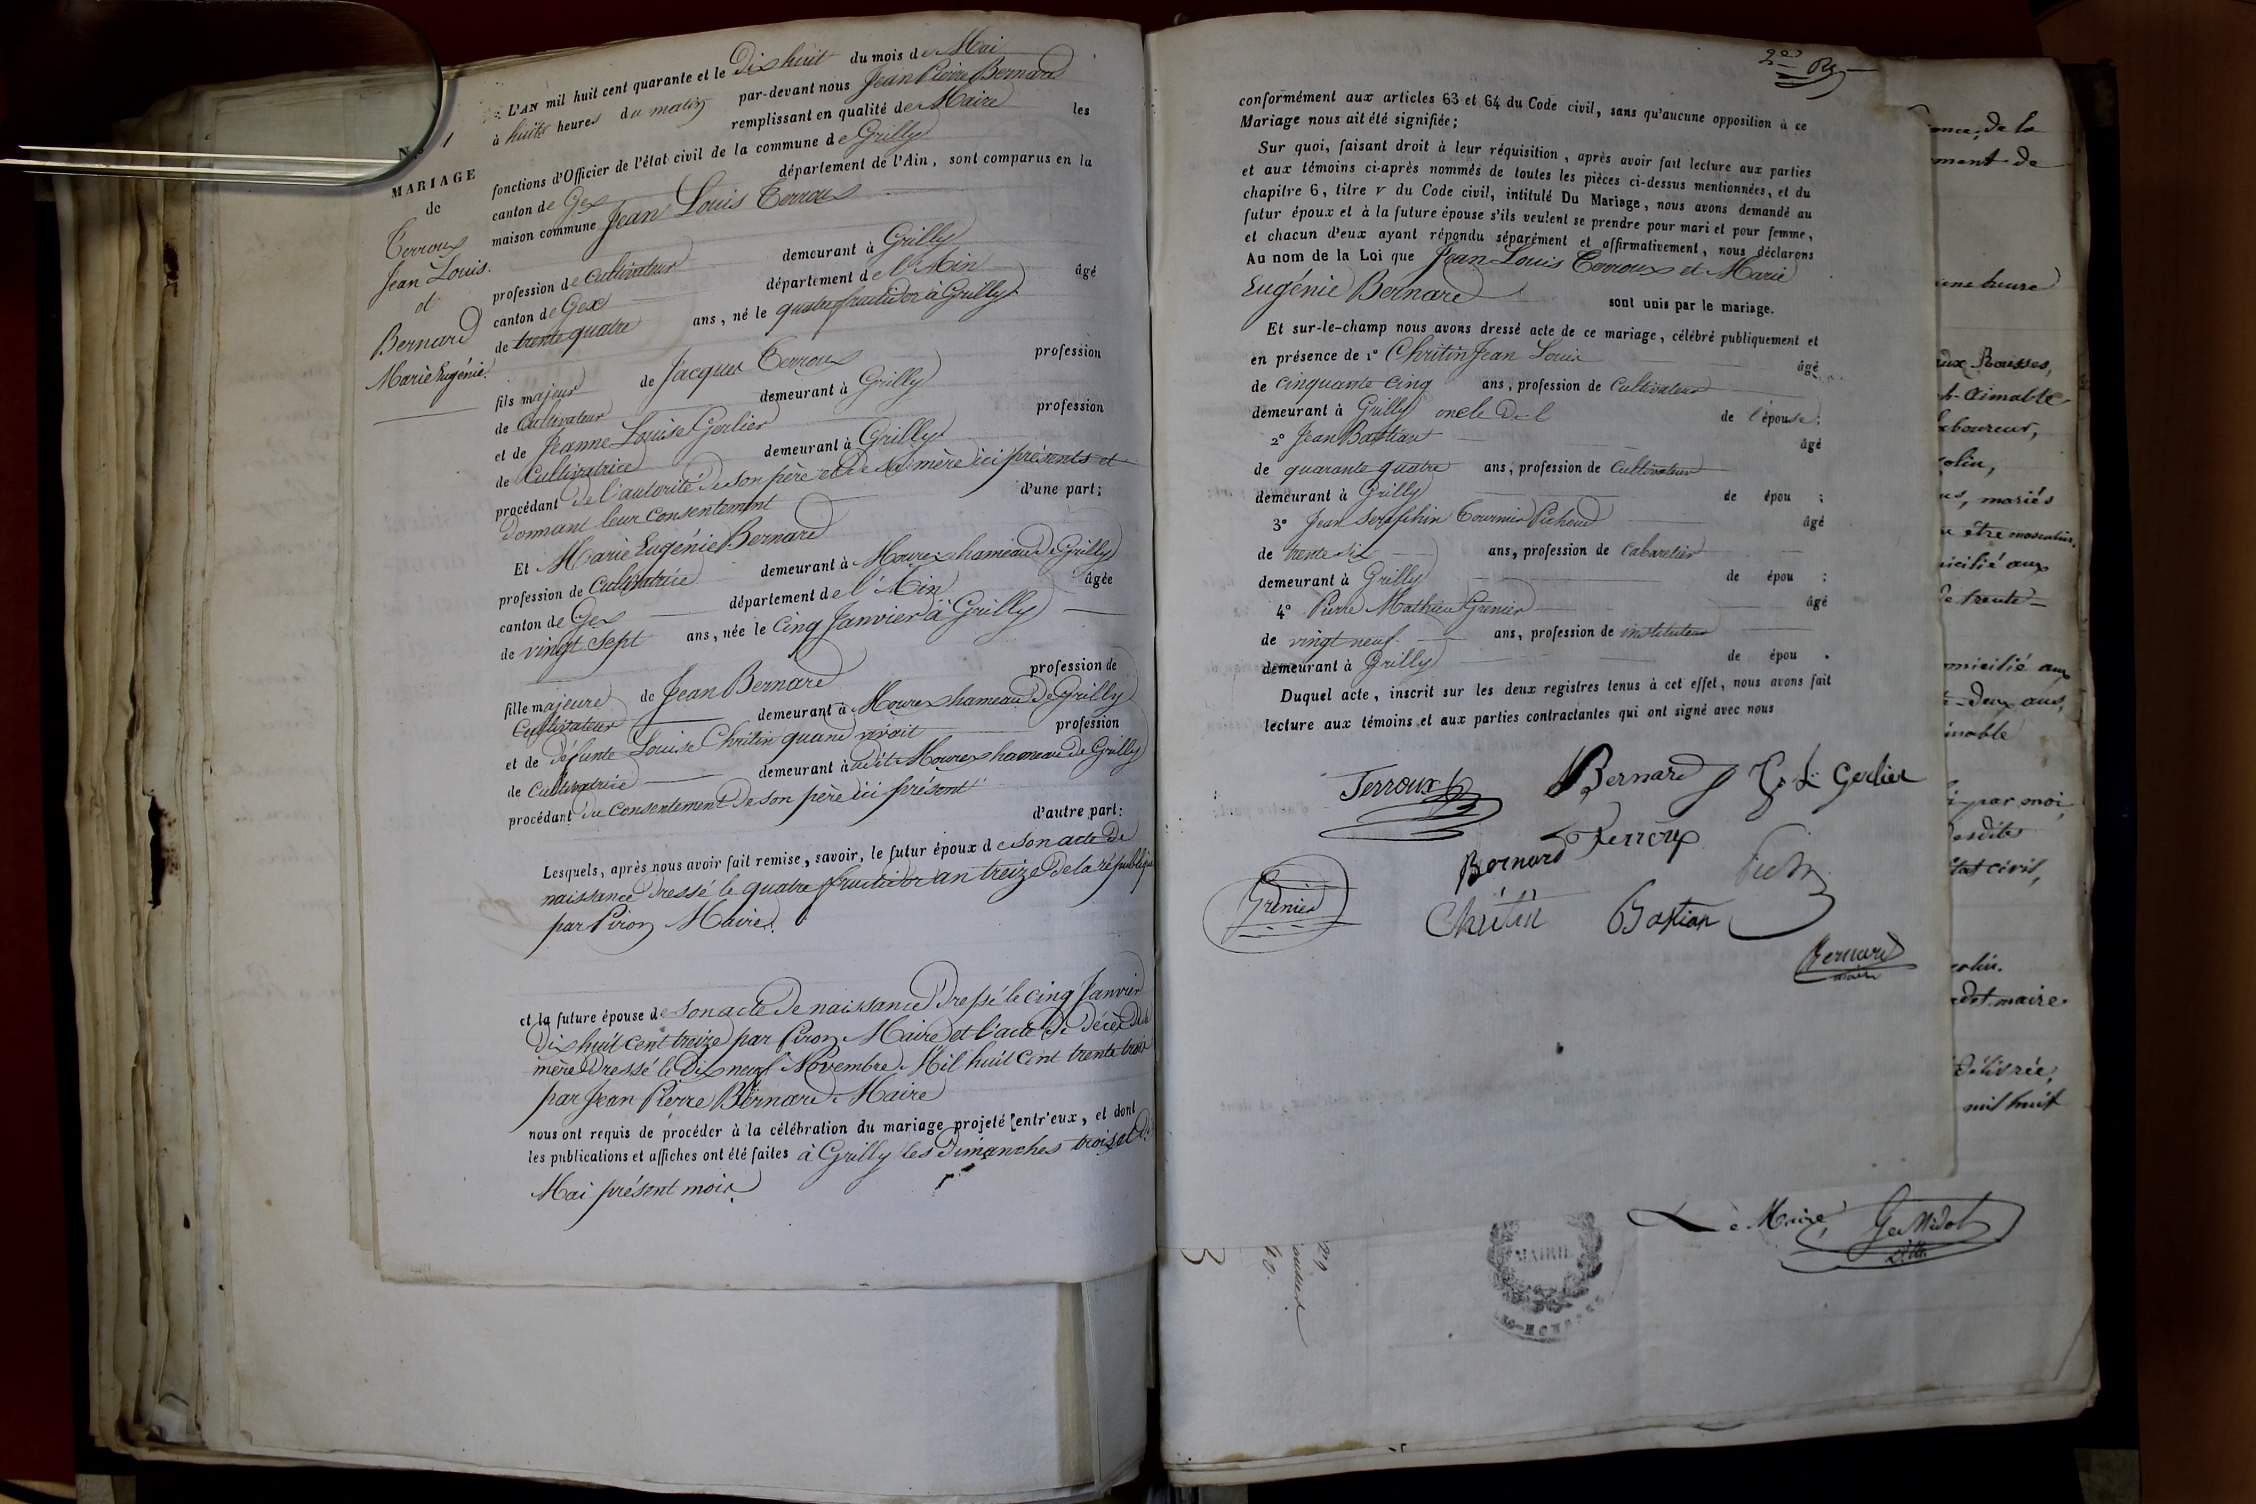 L'AN mil huit cent quarante et le Dix huit du mois de Mai
à huit heures du matin par-devant nous Jean Pierre Bernard
remplissant en qualité de Maire les
fonctions d'Officier de l'état civil de la commune de Grilly
canton de Gex département de l'Ain, sont comparus en la
maison commune Jean Louis Terroux
profession de Cultivateur demeurant à Grilly
canton de Gex département de l'Ain âgé
de trente quatre ans, né le quatre fructidor à Grilly
fils majeur de Jacques Terroux profession
de Cultivateur demeurant à Grilly
et de Jeanne Louise Gerlier profession
de Cultivatrice demeurant à Grilly
procédant de l'autorité de son père et de sa mère ici présents et
donnant leur consentement d'une part;
Et Marie Eugénie Bernard
profession de Cultivatrice demeurant à Mourex hameau de Grilly
canton de Gex département de l'Ain âgée
de vingt sept ans, née le Cinq Janvier à Grilly
fille majeure de Jean Bernard profession de
Cultivateur demeurant à Mourex hameau de Grilly
et de défunte Louise Chritin quand vivait profession
de Cultivatrice demeurant à dit Mourex hameau de Grilly
procédant du consentement de son père ici présent
d'autre part:
Lesquels, après nous avoir fait remise, savoir, le futur époux de son acte de
naissance dressé le quatre fructidor an treize de la république
par Piron Maire.
et la future épouse de son acte de naissance dressé le cinq Janvier
Dix huit cent treize par Piron Maire et l'acte de décès de sa
mère dressé le Dix neuf Novembre Mil huit cent trente trois
par Jean Pierre Bernard Maire
nous ont requis de procéder à la célébration du mariage projeté entr'eux, et dont
les publications et affiches ont été faites à Grilly les Dimanches trois et
Mai présent mois
No 1
MARIAGE
de
Terroux
Jean Louis.
et
Bernard
Marie Eugénie.
conformément aux articles 63 et 64 du Code civil, sans qu'aucune opposition à ce
Mariage nous ait été signifiée;
Sur quoi, faisant droit à leur réquisition, après avoir fait lecture aux parties
et aux témoins ci-après nommés de toutes les pièces ci-dessus mentionnées, et du
chapitre 6, titre v du Code civil, intitulé Du Mariage, nous avons demandé au
futur époux et à la future épouse s'ils veulent se prendre pour mari et pour femme,
et chacun d'eux ayant répondu séparément et affirmativement, nous déclarons
Au nom de la Loi que Jean Louis Terroux et Marie
Eugénie Bernard sont unis par le mariage.
Et sur-le-champ nous avons dressé acte de ce mariage, célébré publiquement et
en présence de 1° Chritin Jean Louis âgé
de cinquante cinq ans, profession de Cultivateur
demeurant à Grilly oncle de l de l'épouse;
2° Jean Bastian âgé
de quarante quatre ans, profession de Cultivateur
demeurant à Grilly de épou ;
3° Jean Seraphin Tournier Pichend âgé
de trente six ans, profession de Cabaretier
demeurant à Grilly de épou ;
4° Pierre Mathieu Grenier âgé
de vingt neuf ans, profession de instituteur
demeurant à Grilly de épou .
Duquel acte, inscrit sur les deux registres tenus à cet effet, nous avons fait
lecture aux témoins et aux parties contractantes qui ont signé avec nous
Terroux Bernard J. L. Gerlier
Bernard Terroux
Grenier Chritin Bastian
Bernard
maire
de la
ment de
heure
Rousses,
Aimable
laboureur,
mariés
être masculin.
domicilié aux
de trente-
domicilié aux
deux ans,
par moi,
desdits
état civil,
maire.
délivrée,
mil huit
Le Maire,
MAIRIE